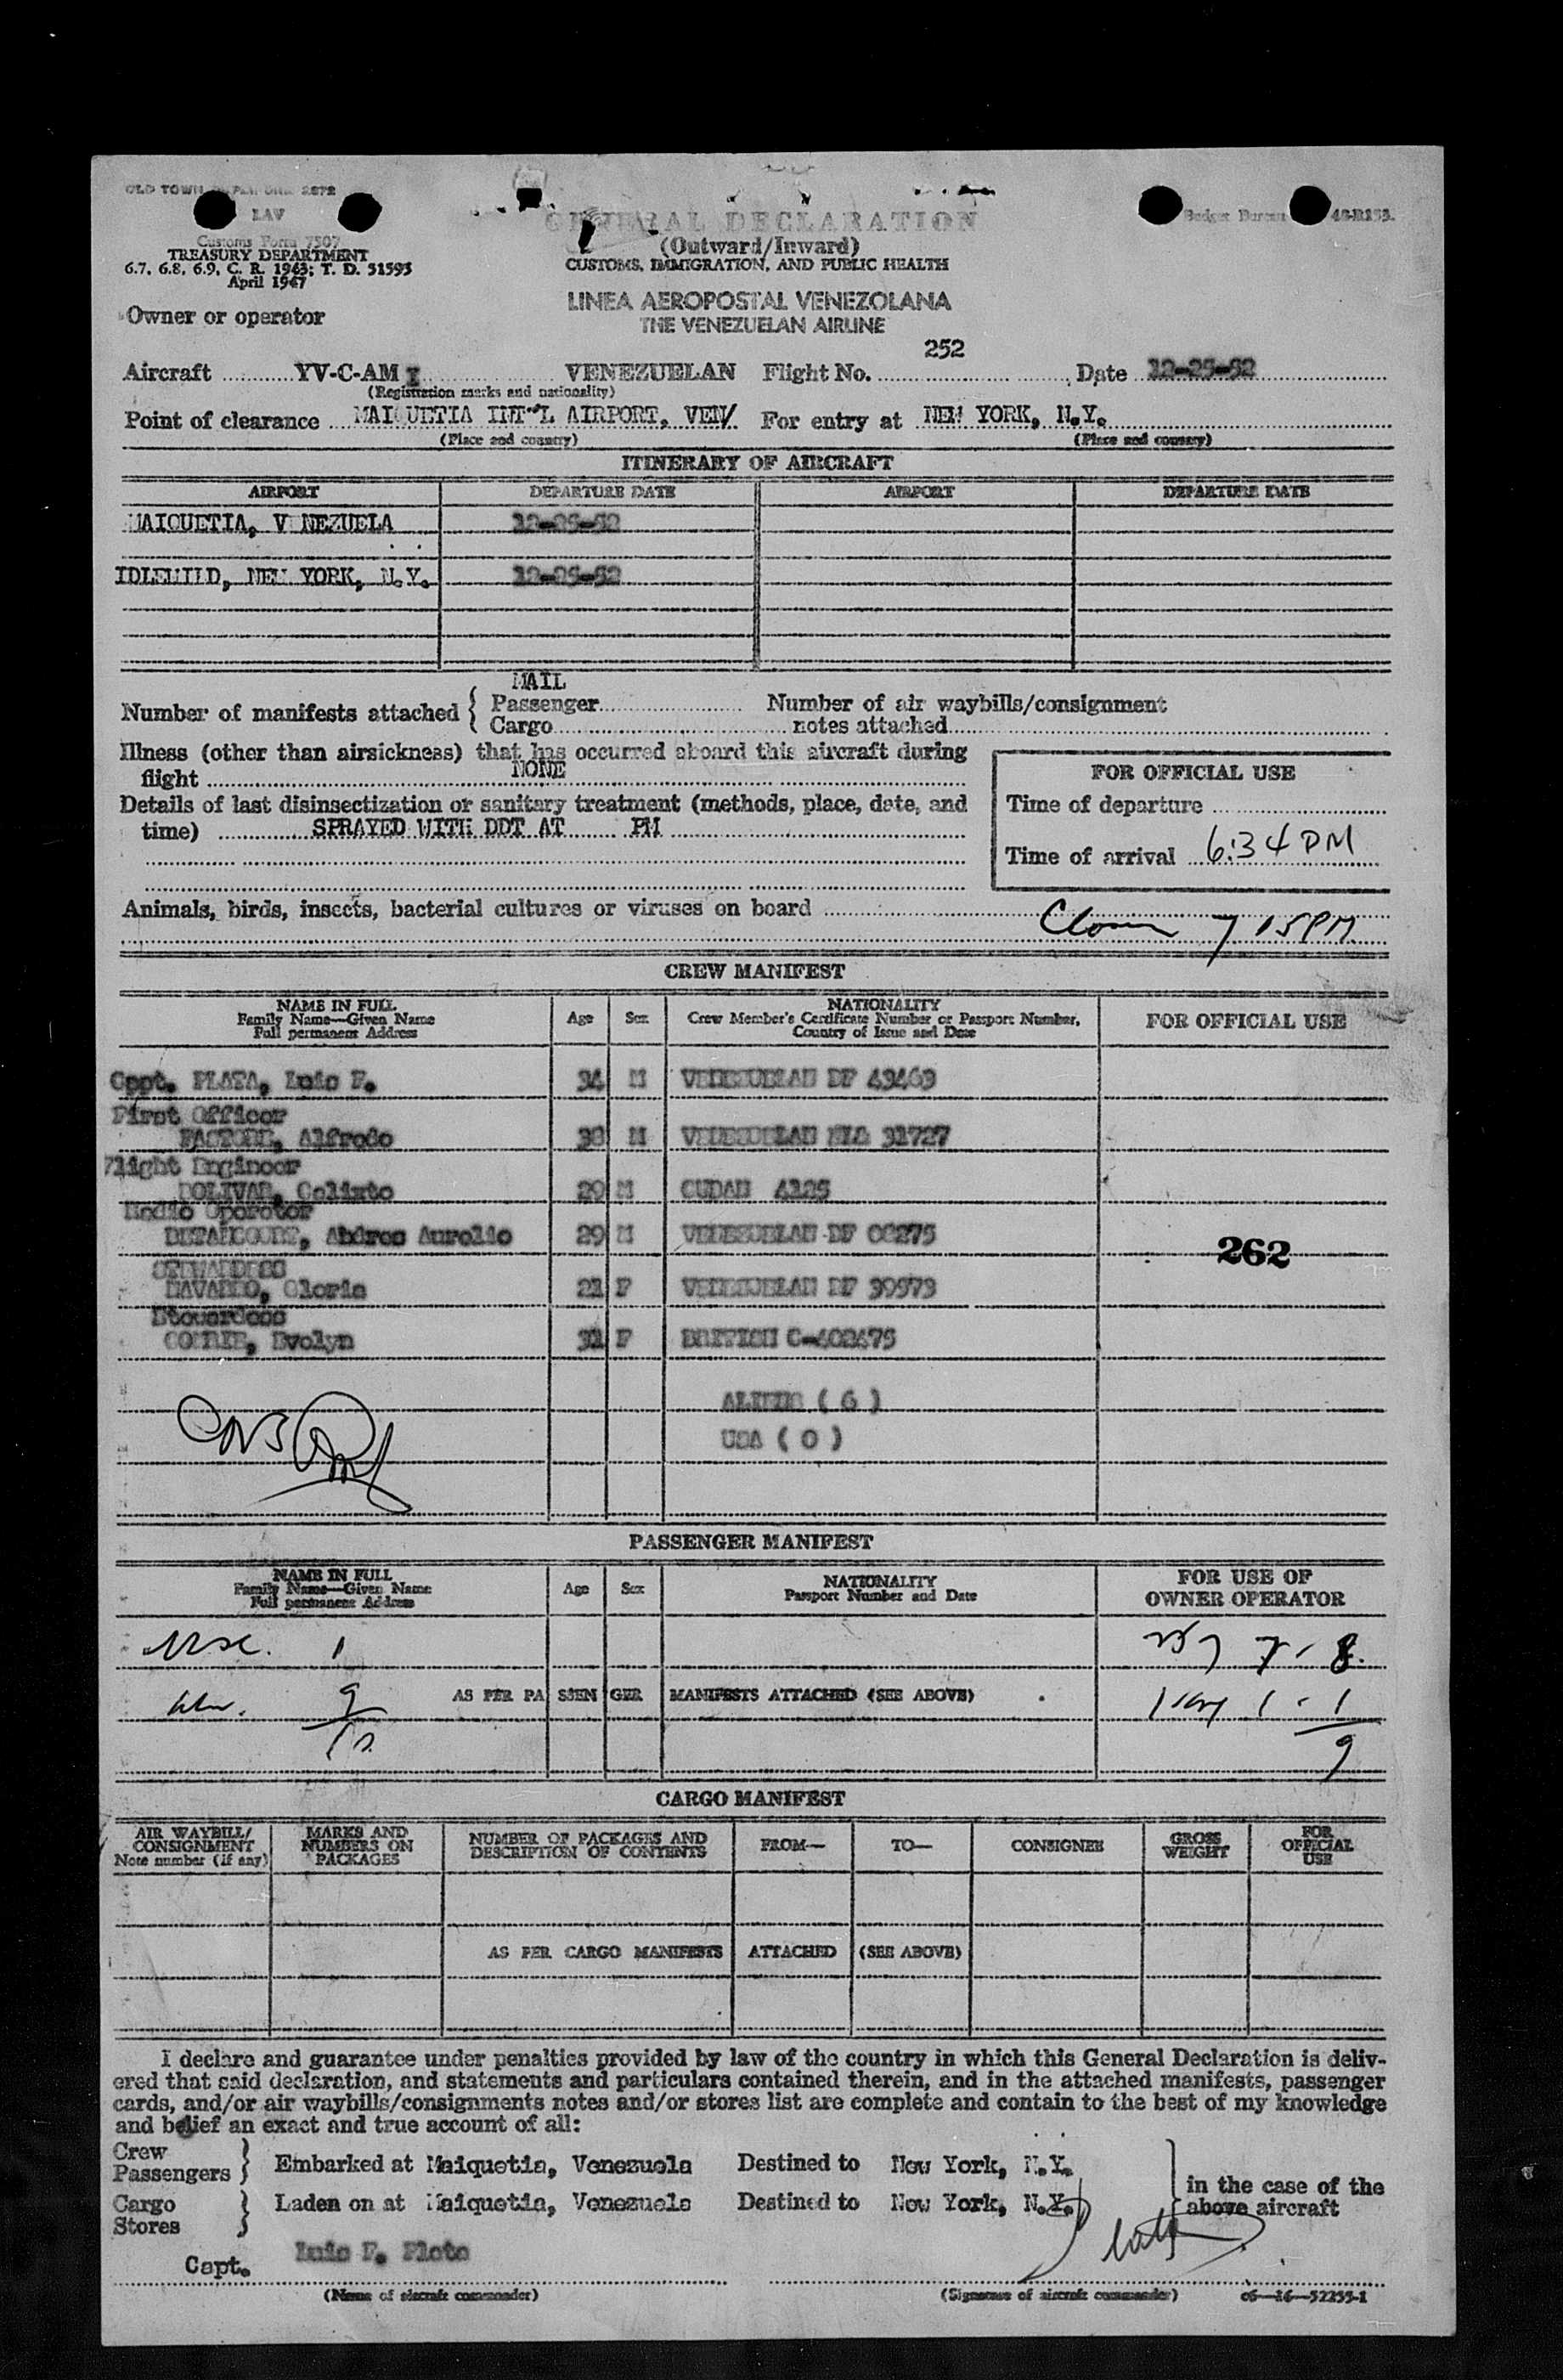 OLD TOWN 2872
LAV
Customs Form 7507
TREASURY DEPARTMENT
6.7, 6.8, 6.9, C. R. 1943; T. D. 51593
April 1947
Budget Bureau 48-R153.
GENERAL DECLARATION
(Outward/Inward)
CUSTOMS, IMMIGRATION, AND PUBLIC HEALTH
LINEA AEROPOSTAL VENEZOLANA
THE VENEZUELAN AIRLINE
Owner or operator
Aircraft YV-C-AM VENEZUELAN Flight No. 252 Date 12-25-52
(Registration marks and nationality)
Point of clearance MAIQUETIA INT'L AIRPORT, VEN. For entry at NEW YORK, N.Y.
(Place and country) (Place and country)
ITINERARY OF AIRCRAFT
AIRPORT DEPARTURE DATE AIRPORT DEPARTURE DATE
MAIQUETIA, VENEZUELA 12-25-52
IDLEWILD, NEW YORK, N.Y. 12-25-52
MAIL
Number of manifests attached { Passenger Number of air waybills/consignment
Cargo notes attached
Illness (other than airsickness) that has occurred aboard this aircraft during
flight NONE
Details of last disinsectization or sanitary treatment (methods, place, date, and
time) SPRAYED WITH DDT AT PM
FOR OFFICIAL USE
Time of departure
Time of arrival 6:34 PM
Animals, birds, insects, bacterial cultures or viruses on board
7 15 PM
CREW MANIFEST
NAME IN FULL
Family Name—Given Name
Full permanent Address
Age Sex
NATIONALITY
Crew Member's Certificate Number or Passport Number,
Country of Issue and Date
FOR OFFICIAL USE
Capt. PLATA, Luis F. 34 M VENEZUELAN DF 43463
First Officer
PASTORE, Alfredo 38 M VENEZUELAN 31727
Flight Engineer
BOLIVAR, Calixto 29 M CUBAN 4125
Radio Operator
BETANCOURT, Andres Aurelio 29 M VENEZUELAN DF 08275
262
STEWARDESS
NAVARRO, Gloria 21 F VENEZUELAN DF 39573
Stewardess
Evelyn 31 F BRITISH C-402475
ALIENS ( 6 )
USA ( 0 )
PASSENGER MANIFEST
NAME IN FULL
Family Name—Given Name
Full permanent Address
Age Sex
NATIONALITY
Passport Number and Date
FOR USE OF
OWNER OPERATOR
1 7 - 8
9 AS PER PASSENGER MANIFESTS ATTACHED (SEE ABOVE) 1 - 1
10 9
CARGO MANIFEST
AIR WAYBILL/
CONSIGNMENT
Note number (if any)
MARKS AND
NUMBERS ON
PACKAGES
NUMBER OF PACKAGES AND
DESCRIPTION OF CONTENTS
FROM— TO— CONSIGNEE
GROSS
WEIGHT
FOR
OFFICIAL
USE
AS PER CARGO MANIFESTS ATTACHED (SEE ABOVE)
I declare and guarantee under penalties provided by law of the country in which this General Declaration is deliv-
ered that said declaration, and statements and particulars contained therein, and in the attached manifests, passenger
cards, and/or air waybills/consignments notes and/or stores list are complete and contain to the best of my knowledge
and belief an exact and true account of all:
Crew
Passengers } Embarked at Maiquetia, Venezuela Destined to New York, N.Y.
Cargo
Stores } Laden on at Maiquetia, Venezuela Destined to New York, N.Y.
in the case of the
above aircraft
Capt. Luis F. Plata
(Name of aircraft commander) (Signature of aircraft commander) c6—16—52255-1